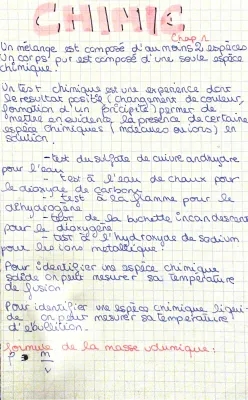 CHIMIE
Chap 1
Un mélange est composé d'au moins 2 espèces
Un corps pur est composé d'une seule espèce
chimique.
Un test chimique est une experience dont
le resultat positif (changement de couleur,
formation d'un précipité) permet de
mettre en evidente la présence de certaine
espèce chimiques (molécules ou ions) en
solution.
- test du sulfate de cuivre anhydre
pour l'eau
- test à l'eau de chaux pour
le dioxyde de carbone
- test à la flamme pour le
dihydrogène
- test de la buchette incandescente
pour le dioxygène
- test à l'hydroxyde de sodium
pour les ions metallique.
Pour identifier une espèce chimique
solide on peut mesurer sa température
de fusion
Pour identifier une espèce chimique liqui-
de on peut mesurer sa température
d'ébullition.
formule de la masse volumique:
m
V